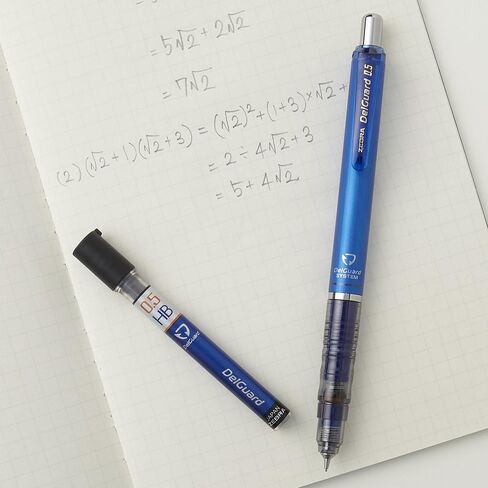 = 5√2 + 2√2
= 7√2
(2) (√2+1)(√2+3) = (√2)² + (1+3)×√2 +
= 2 ÷ 4√2 + 3
= 5 + 4√2
ZEBRA DelGuard 0.5
DelGuard
SYSTEM
0.5
HB
DelGuard
DelGuard
JAPAN
ZEBRA